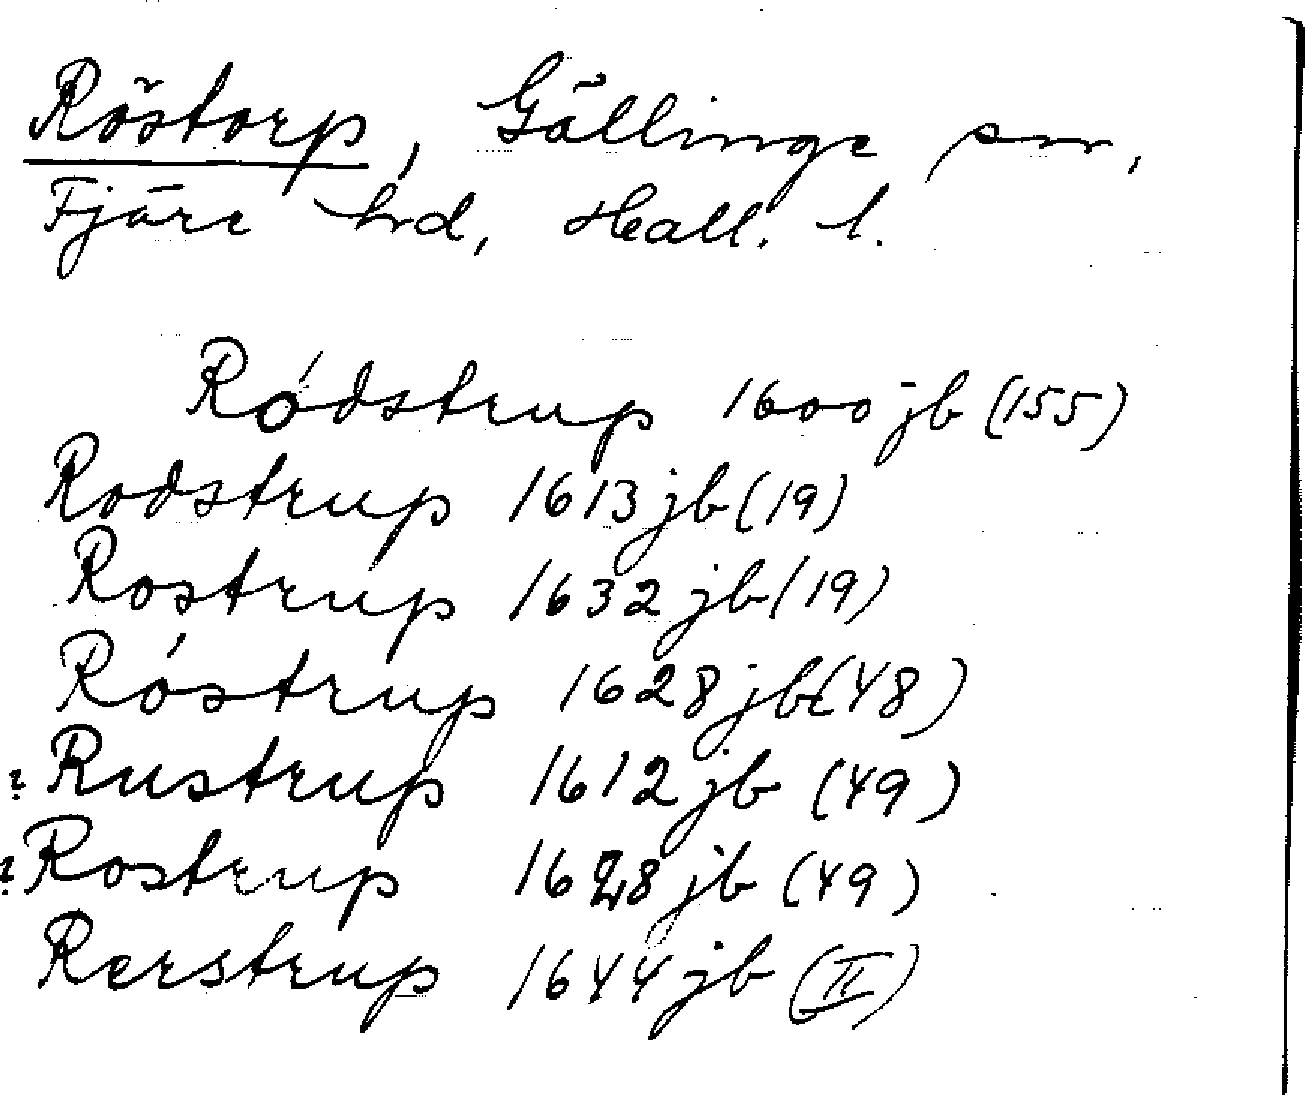 Röstorp, Gällinge sn,
Fjäre hrd, Hall. l.
Ródstrup 1600 jb (155)
Rodstrup 1613 jb (19)
Rostrup 1632 jb (19)
Róstrup 1628 jb (48)
? Rustrup 1612 jb (49)
? Rostrup 1628 jb (49)
Rerstrup 1644 jb (II)